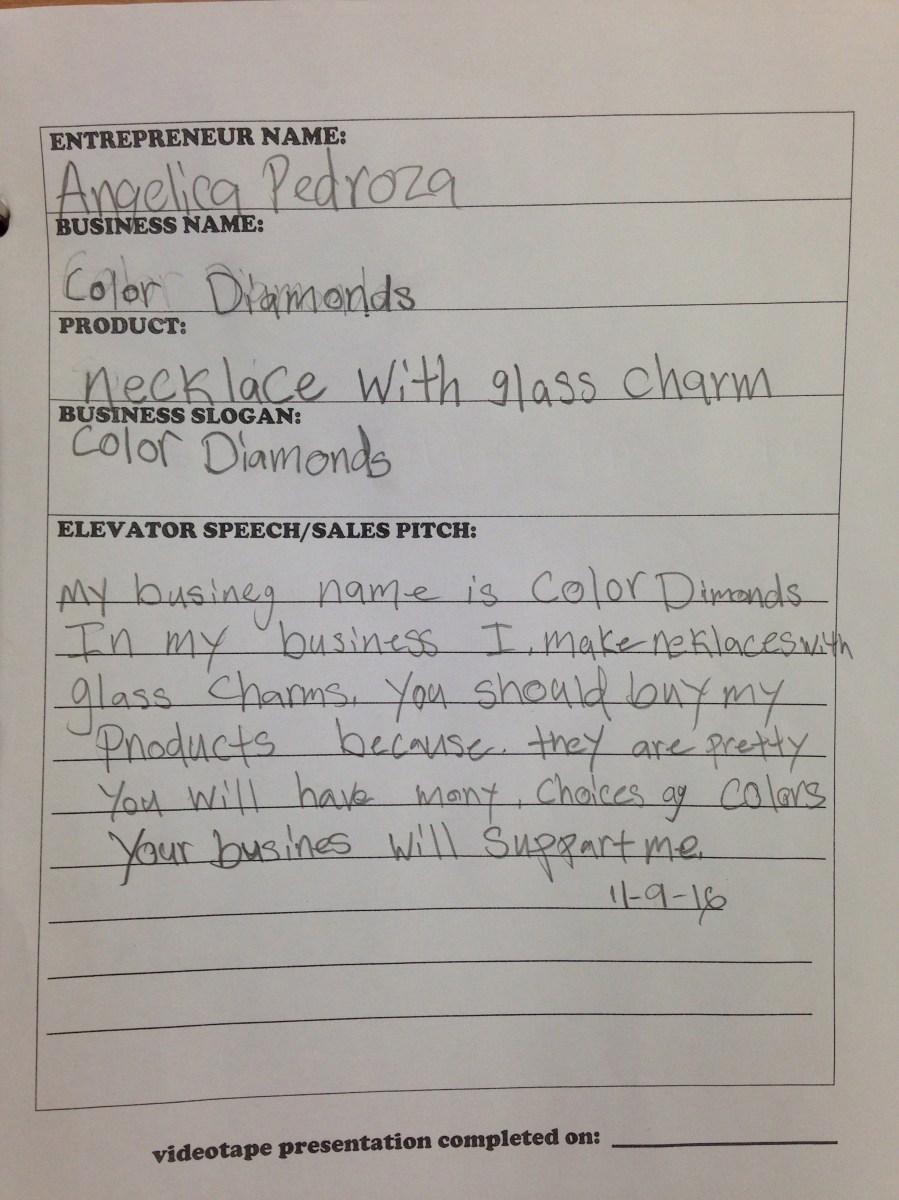 ENTREPRENEUR NAME:
Angelica Pedroza
BUSINESS NAME:
Color Diamonds
PRODUCT:
necklace with glass charm
BUSINESS SLOGAN:
Color Diamonds
ELEVATOR SPEECH/SALES PITCH:
My busineg name is Color Dimonds
In my business I, make neklaces with
glass Charms. You should buy my
Products because. they are pretty
You will have mony, Choices og Colors
Your busines will Suppart me.
11-9-16
videotape presentation completed on: